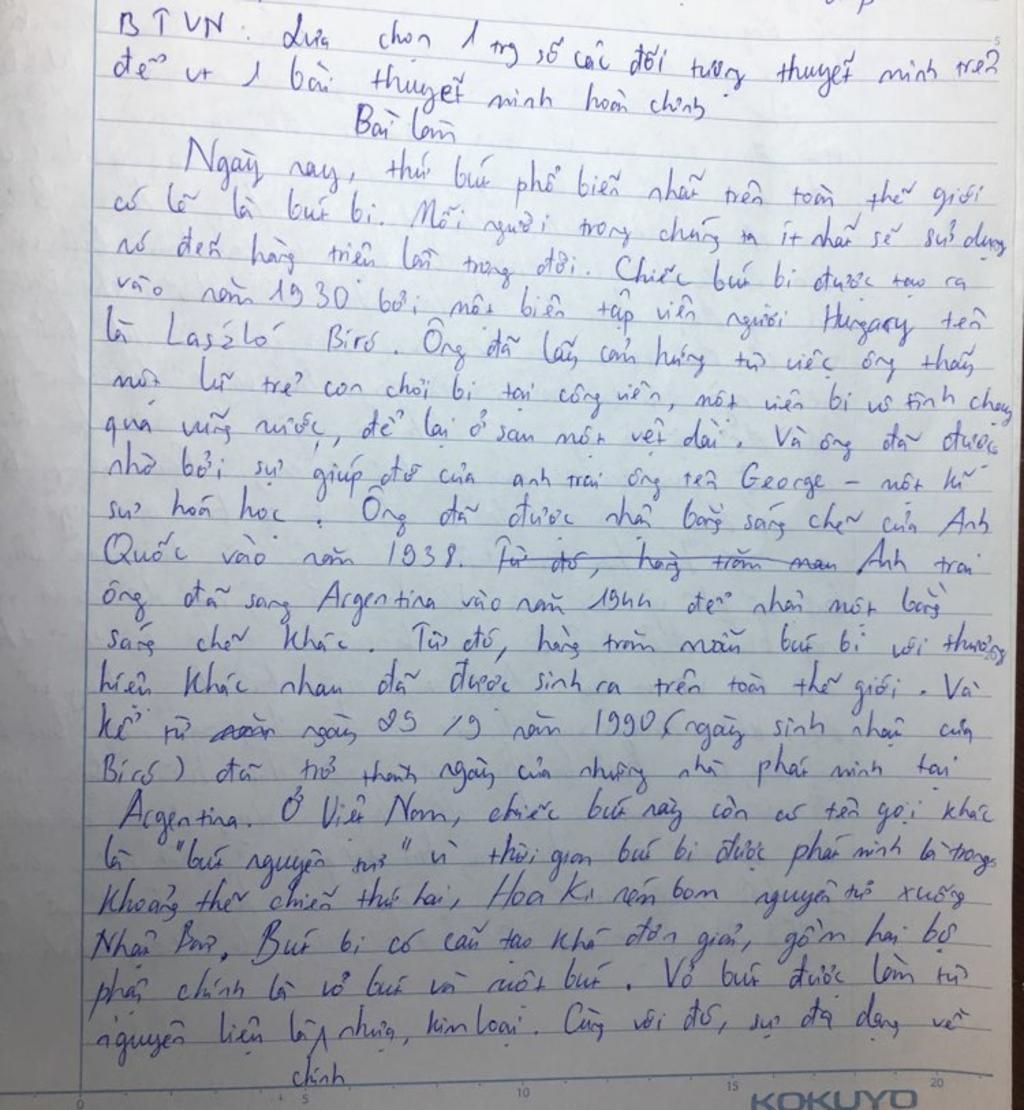 BTVN: Lựa chọn 1 trg số các đối tượng thuyết minh trên
để vt 1 bài thuyết minh hoàn chỉnh
Bài làm
Ngày nay, thứ bút phổ biến nhất trên toàn thế giới
có lẽ là bút bi. Mỗi người trong chúng ta ít nhất sẽ sử dụng
nó đến hàng triệu lần trong đời. Chiếc bút bi được tạo ra
vào năm 1930 bởi một biên tập viên người Hungary tên
là László Biró. Ông đã lấy cảm hứng từ việc ông thấy
một lũ trẻ con chơi bi tại công viên, một viên bi vô tình chạy
qua vũng nước, để lại ở sau một vệt dài. Và ông đã được
nhờ bởi sự giúp đỡ của anh trai ông tên George - một kĩ
sư hoá học. Ông đã được nhận bằng sáng chế của Anh
Quốc vào năm 1938. Từ đó, hàng trăm Anh trai
ông đã sang Argentina vào năm 1944 để nhận một bằng
sáng chế khác. Từ đó, hàng trăm mẫu bút bi với thương
hiệu khác nhau đã được sinh ra trên toàn thế giới. Và
kể từ ngày 29/9 năm 1990 (ngày sinh nhật của
Biró) đã trở thành ngày của những nhà phát minh tại
Argentina. Ở Việt Nam, chiếc bút này còn có tên gọi khác
là "bút nguyên tử" vì thời gian bút bi được phát minh là trong
khoảng thế chiến thứ hai, Hoa Kì ném bom nguyên tử xuống
Nhật Bản. Bút bi có cấu tạo khá đơn giản, gồm hai bộ
phận chính là vỏ bút và ruột bút. Vỏ bút được làm từ
nguyên liệu là nhựa, kim loại. Cùng với đó, sự đa dạng về
chính
0 5 10 15 20
KOKUYO